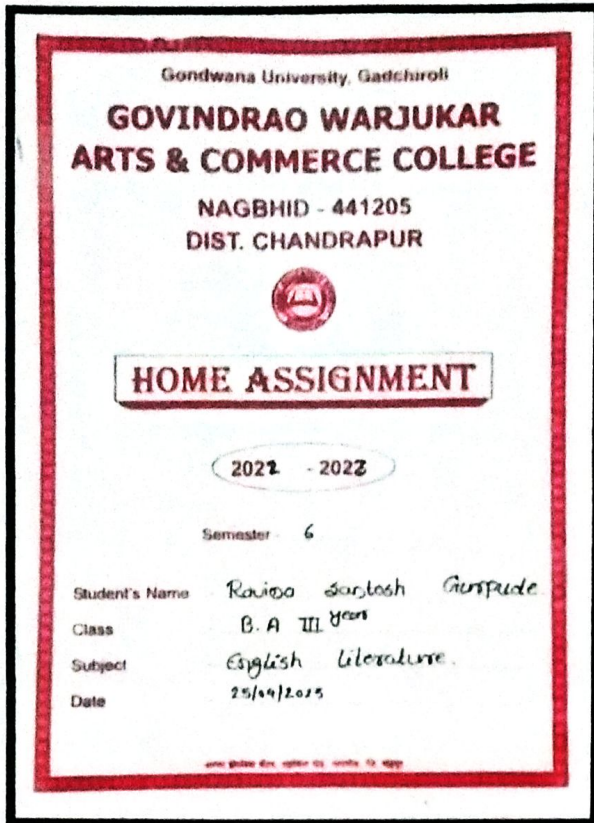 Gondwana University, Gadchiroli
GOVINDRAO WARJUKAR
ARTS & COMMERCE COLLEGE
NAGBHID - 441205
DIST. CHANDRAPUR
HOME ASSIGNMENT
2022 - 2023
Semester 6
Student's Name Santosh
Class B.A III year
Subject English Literature.
Date